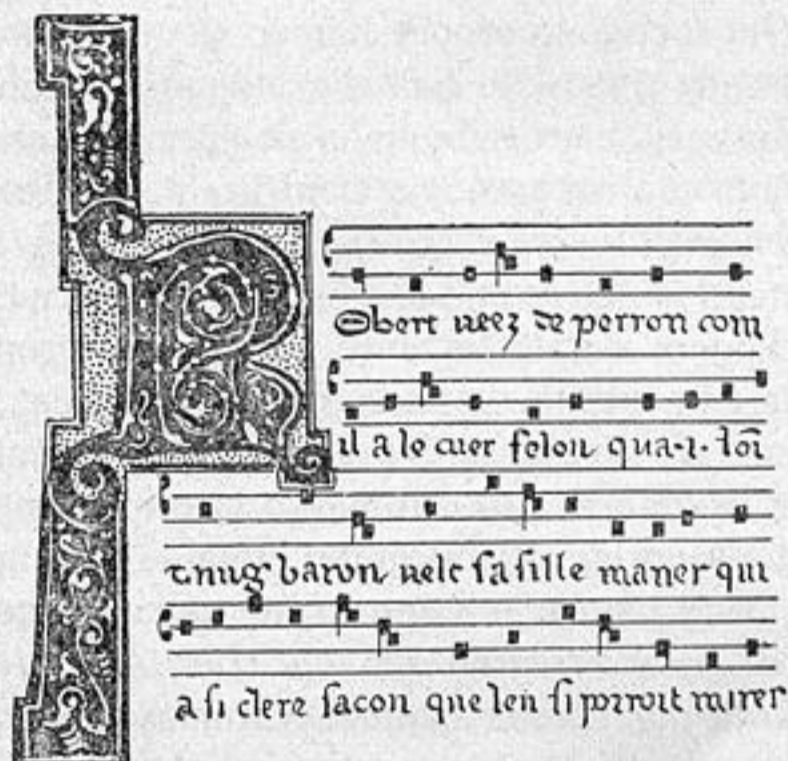 Robert veez de perron com
il a le cuer felon qua .i. loī
tnug baron velt sa fille marier qui
a si clere facon que len si porroit mirer